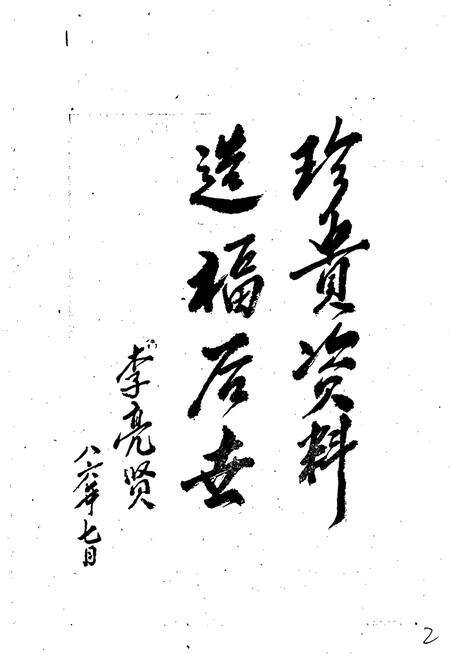 珍貴资料
造福后世
李亮贤
八六年七月
2